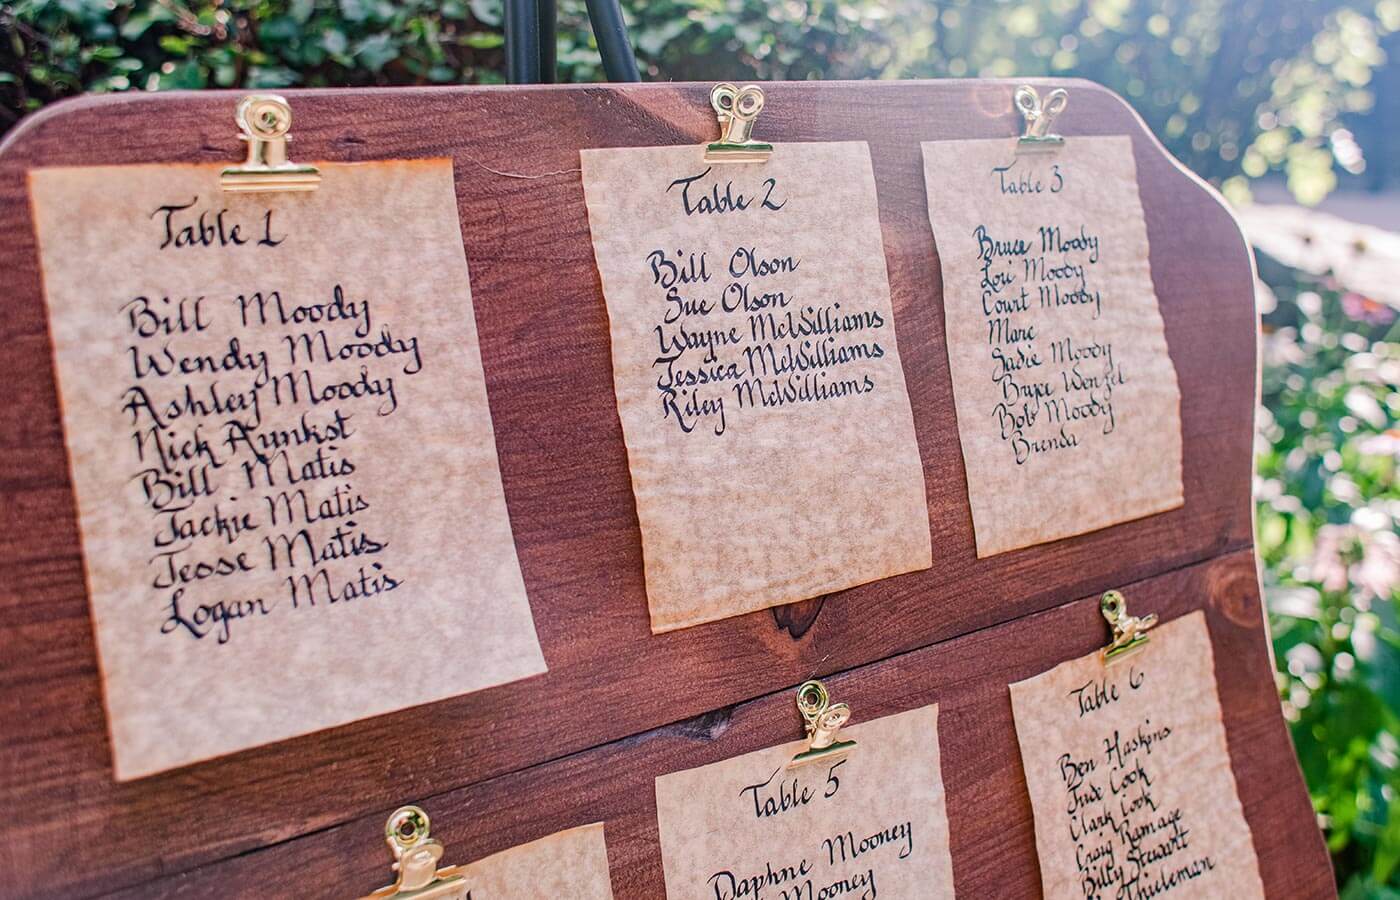 Table 1
Bill Moody
Wendy Moody
Ashley Moody
Nick Aunkst
Bill Matis
Jackie Matis
Jesse Matis
Logan Matis
Table 2
Bill Olson
Sue Olson
Wayne McWilliams
Jessica McWilliams
Riley McWilliams
Table 3
Bruce Moody
Lori Moody
Court Moody
Marc
Sadie Moody
Bryce Wenzel
Bob Moody
Brenda
Table 5
Daphne Mooney
Mooney
Table 6
Ben Haskins
Jude Cook
Clark Cook
Craig Ramage
Billy Stewart
Thieleman